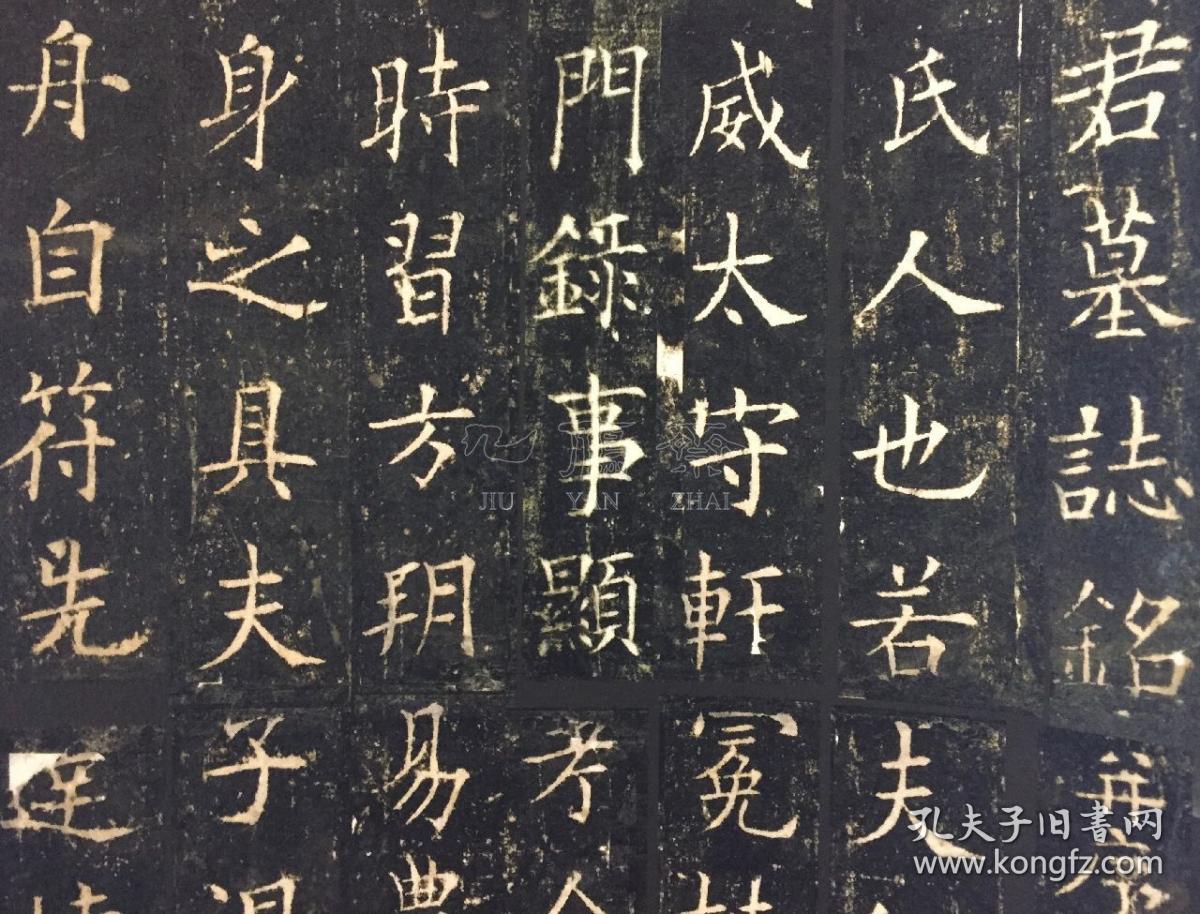 君墓誌銘并序
氏人也若夫
威太守軒冕
門錄事顯考
時習方玥易
身之具夫子
舟自符先
九鷃齋
JIU YAN ZHAI
孔夫子旧書网
www.kongfz.com